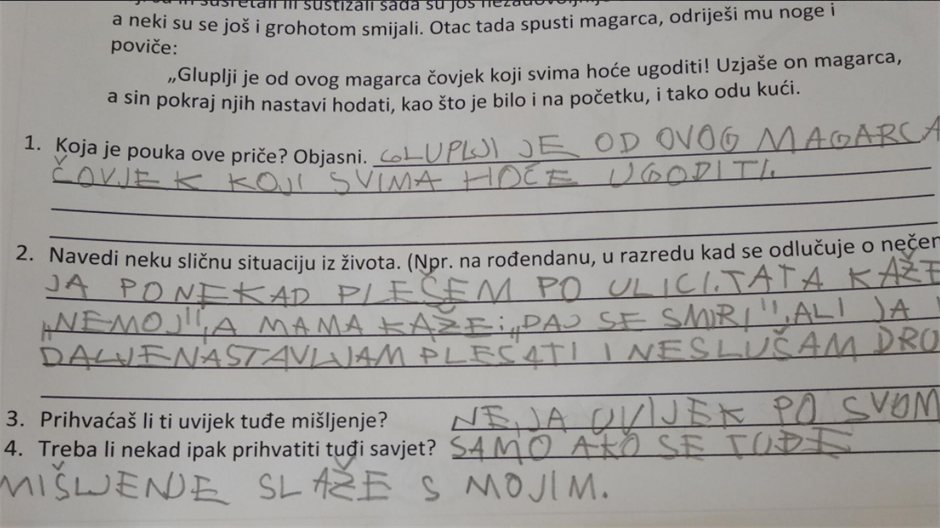 a neki su se još i grohotom smijali. Otac tada spusti magarca, odriješi mu noge i
poviče:
„Gluplji je od ovog magarca čovjek koji svima hoće ugoditi! Uzjaše on magarca,
a sin pokraj njih nastavi hodati, kao što je bilo i na početku, i tako odu kući.
1. Koja je pouka ove priče? Objasni. GLUPLJI JE OD OVOG MAGARCA
ČOVJEK KOJI SVIMA HOĆE UGODITI.
2. Navedi neku sličnu situaciju iz života. (Npr. na rođendanu, u razredu kad se odlučuje o nečem
JA PONEKAD PLEŠEM PO ULICI. TATA KAŽE
„NEMOJ", A MAMA KAŽE: „DAJ SE SMIRI", ALI JA
DALJE NASTAVLJAM PLESATI I NE SLUŠAM DRU
3. Prihvaćaš li ti uvijek tuđe mišljenje? NE, JA UVIJEK PO SVOM
4. Treba li nekad ipak prihvatiti tuđi savjet? SAMO AKO SE TUĐE
MIŠLJENJE SLAŽE S MOJIM.